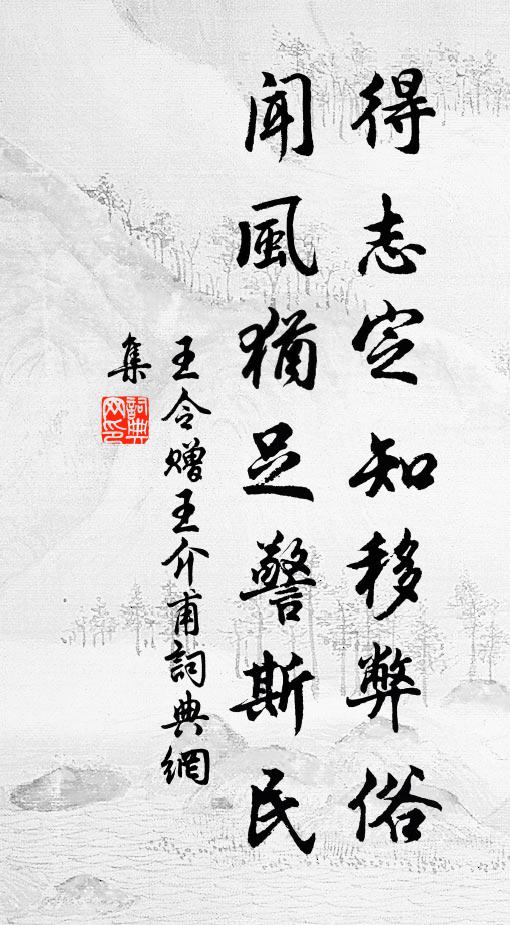 得志定知移弊俗
聞風猶足警斯民
王令贈王介甫詞典網
集
詞典
网印